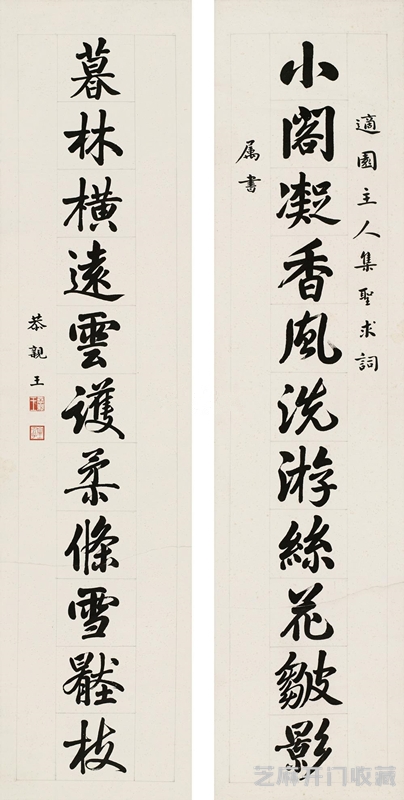 適園主人集聖求詞
小閣凝香風洗游絲花皺影
属書
暮林橫遠雲護柔條雪枝
恭親王
芝麻开门收藏